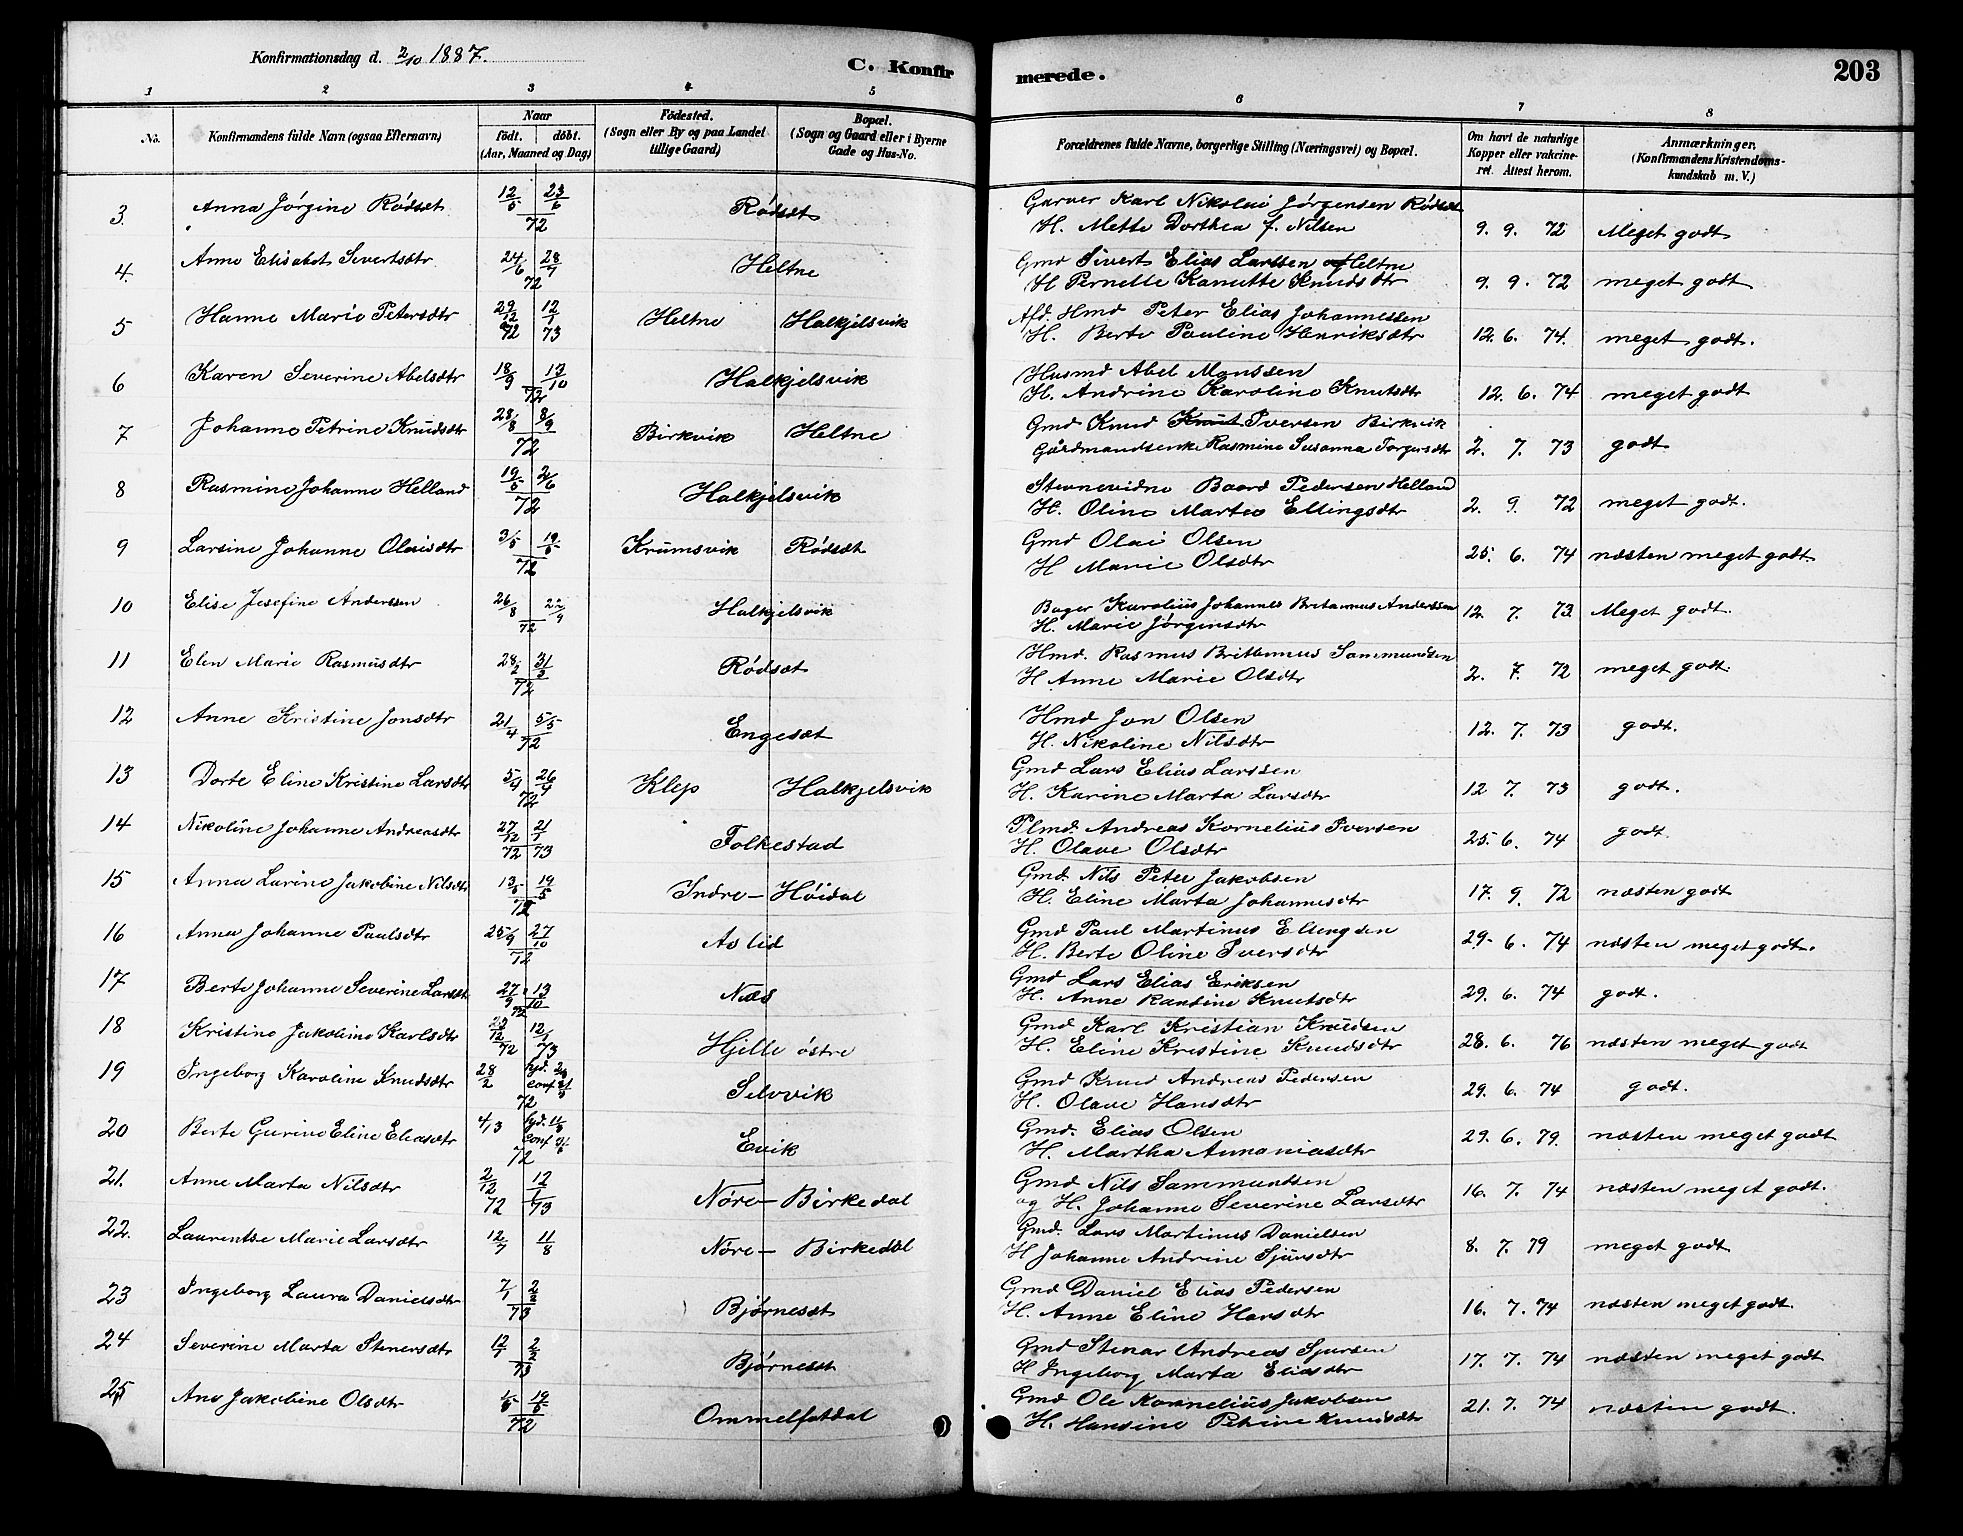 Konfirmationsdag d. 2/10 1887.
C. Konfirmerede.
203
1 2 3 4 5 6 7 8
No.
Konfirmandens fulde Navn (ogsaa Efternavn)
Naar
födt. döbt.
(Aar, Maaned og Dag)
Födested.
(Sogn eller By og paa Landet tillige Gaard)
Bopæl.
(Sogn og Gaard eller i Byerne Gade og Hus-No.
Forældrenes fulde Navne, borgerlige Stilling (Næringsvei) og Bopæl.
Om havt de naturlige Kopper eller vakcineret. Attest herom.
Anmærkninger.
(Konfirmandens Kristendomskundskab m. V.)
3. Anna Jørgine Rødset 12/5 23/6 72 Rødset Garver Karl Nikolai Jørgensen Rødset
H. Mette Dorthea f. Nilsen 9. 9. 72 Meget godt
4. Anne Elisabet Severtsdtr 24/6 28/7 72 Heltne Gmd Sivert Elias Larssen Heltne
H Pernelle Kanutte Knudsdtr 9. 9. 72 meget godt
5 Hanne Marie Petersdtr 29/12 72 12/1 73 Heltne Halkjelsvik Afd. Hmd Peter Elias Johannessen
H. Berte Pauline Henriksdtr 12. 6. 74. meget godt.
6 Karen Severine Abelsdtr 18/9 13/10 72 Halkjelsvik Husmd Abel Monssen
H. Andrine Karoline Knutsdtr 12. 6. 74 meget godt
7 Johanne Petrine Knudsdtr 28/8 8/9 72 Birkvik Heltne Gmd Knud Knut Iversen Birkvik
Gårdmandsenke Rasmine Susanna Torgersdtr 2. 7. 73 godt
8 Rasmine Johanne Helland 19/5 2/6 72 Halkjelsvik Stevnevidne Baard Pedersen Helland
H. Oline Martea Ellingsdtr 2. 9. 72 meget godt.
9 Larsine Johanne Olaisdtr 3/5 19/5 72 Krumsvik Rødset Gmd Olai Olsen
H Marie Olsdtr 25. 6. 74 næsten meget godt.
10 Elise Josefine Anderssen 26/8 22/9 72 Halkjelsvik Bager Karolius Johannes Britannus Anderssen
H. Marie Jørgensdtr 12. 7. 73. Meget godt.
11 Elen Marie Rasmusdtr 28/2 31/3 72 Rødset Hmd. Rasmus Brittannus Sammundsen
H Anne Marie Olsdtr 2. 7. 72 meget godt.
12 Anne Kristine Jonsdtr 21/4 5/5 72 Engeset Hmd Jon Olsen
H. Nikoline Nilsdtr 12. 7. 73 godt.
13 Dorte Eline Kristine Larsdtr 5/4 26/4 72 Klep Halkjelsvik Gmd Lars Elias Larssen
H. Karine Marta Larsdtr 12 7. 73 godt.
14 Nikoline Johanne Andreasdtr 27/12 72 21/1 73 Folkestad Plmd. Andreas Kornelius Iversen
H. Olave Olsdtr 25. 6. 74 godt.
15 Anna Larine Jakobine Nilsdtr 13/5 19/5 72 Indre - Höidal Gmd Nils Peter Jakobsen
H. Eline Marta Johannesdtr 17. 9. 72 næsten godt
16 Anna Johanne Paulsdtr 25/9 27/10 72 Aslid Gmd Paul Martinus Ellengsen
H. Berte Oline Iversdtr 29. 6. 74 næsten meget godt.
17 Berte Johanne Severine Larsdt 27/9 13/10 72 Næs Gmd Lars Elias Eriksen
H. Anne Rantine Knutsdtr 29. 6. 74 godt.
18 Kristine Jakobine Karlsdtr 22/12 72 12/1 73 Hjelle östre Gmd Karl Kristian Knudsen
H. Eline Kristine Knudsdtr 28. 6. 76 næsten meget godt
19 Ingeborg Karoline Knudsdtr 28/2 72 Selvvik Gmd Knud Andreas Pedersen
H. Olave Hansdtr 29. 6. 74 godt.
20 Berte Gurine Eline Eliasdtr 4/3 72 Evik Gmd. Elias Olsen
H. Martha Annaniasdtr 29. 6. 79. næsten meget godt
21. Anne Marta Nilsdtr 2/12 72 12/1 73 Nøre - Birkedal Gmd Nils Sammundsen
og H. Johanne Severine Larsdtr 16. 7. 74 næsten meget godt.
22. Laurentse Marie Larsdtr 12/7 11/8 Nøre - Birkedal Gmd. Lars Martinus Danielsen
H Johanne Andrine Sjursdtr 8. 7. 79 meget godt
23 Ingeborg Laura Danielsdtr 7/1 2/2 73 Bjørneset Gmd Daniel Elias Pedersen
H. Anne Eline Hansdtr 16. 7. 74 næsten meget godt.
24 Severine Marta Stenersdtr 12/1 2/2 73 Bjørneset Gmd Stenar Andreas Sjursen
H Ingeborg Marta Eliasdtr 17. 7. 74 næsten meget godt
25 Ane Jakobine Olsdtr 1/5 19/5 72 Ommelfotdal Gmd Ole Kornelius Jakobsen
H. Hansine Petrine Knudsdtr 21. 7. 74 næsten godt.